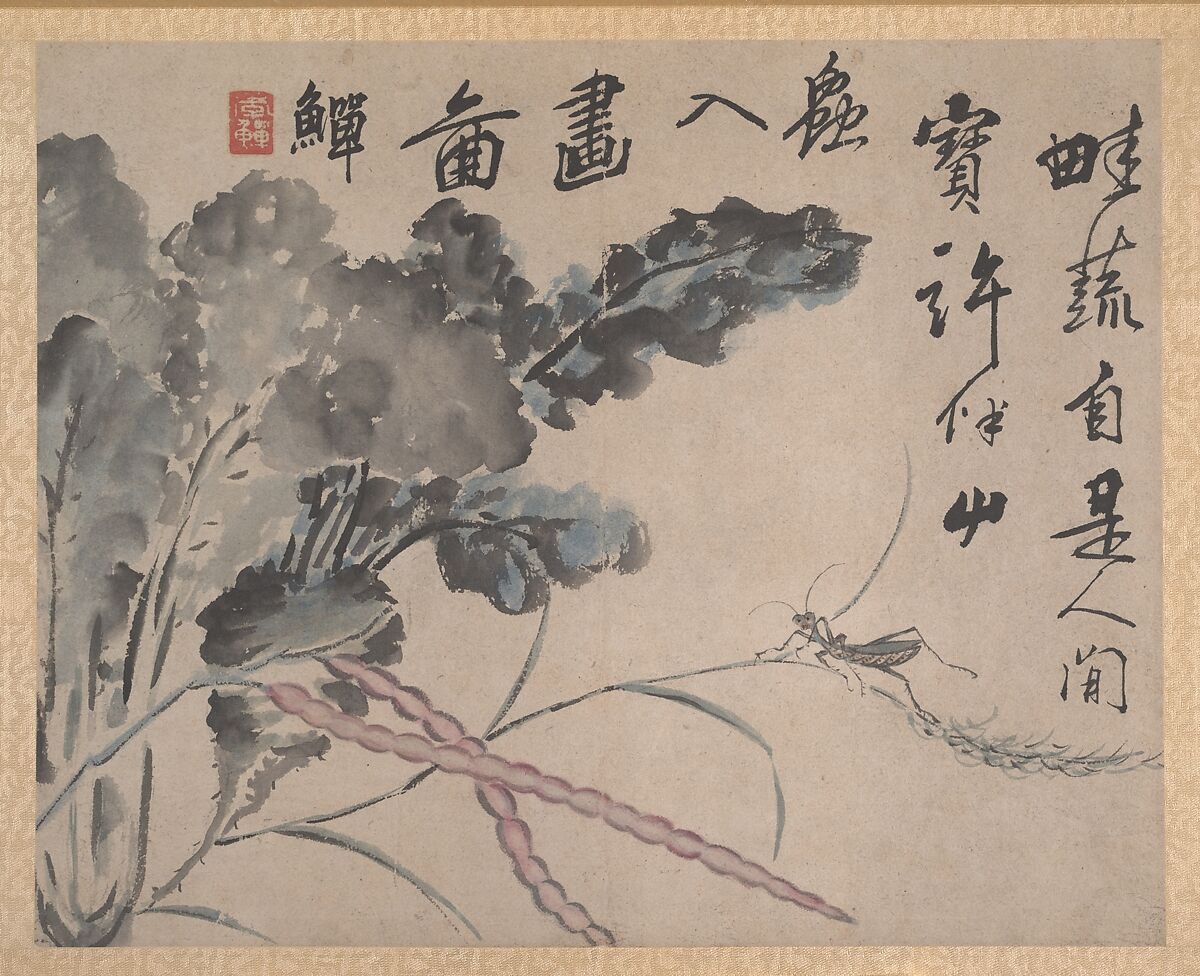 畦蔬自是人間
寶許伴屮
蟲入畫圖鱓
李鱓